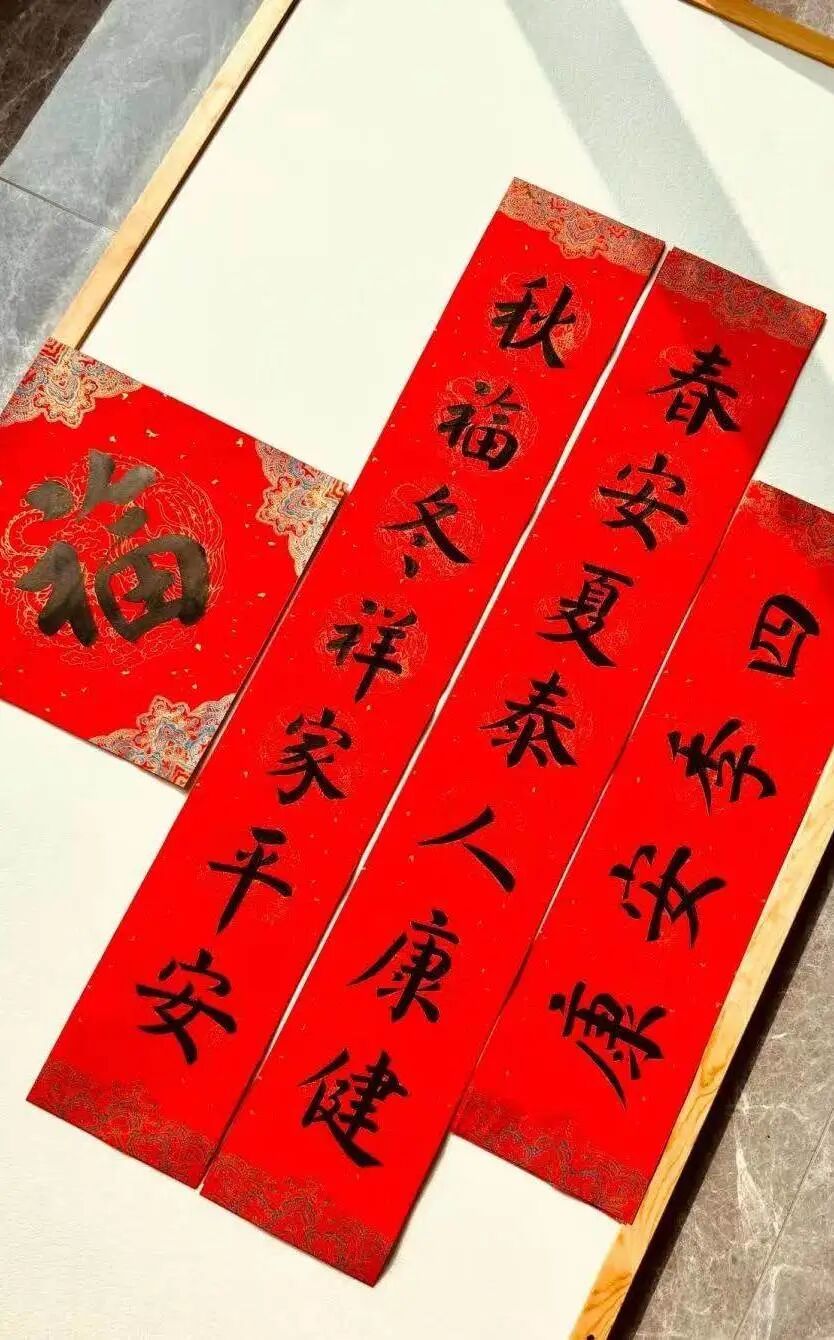 春安夏泰人康健
秋福冬祥家平安
四季安康
福